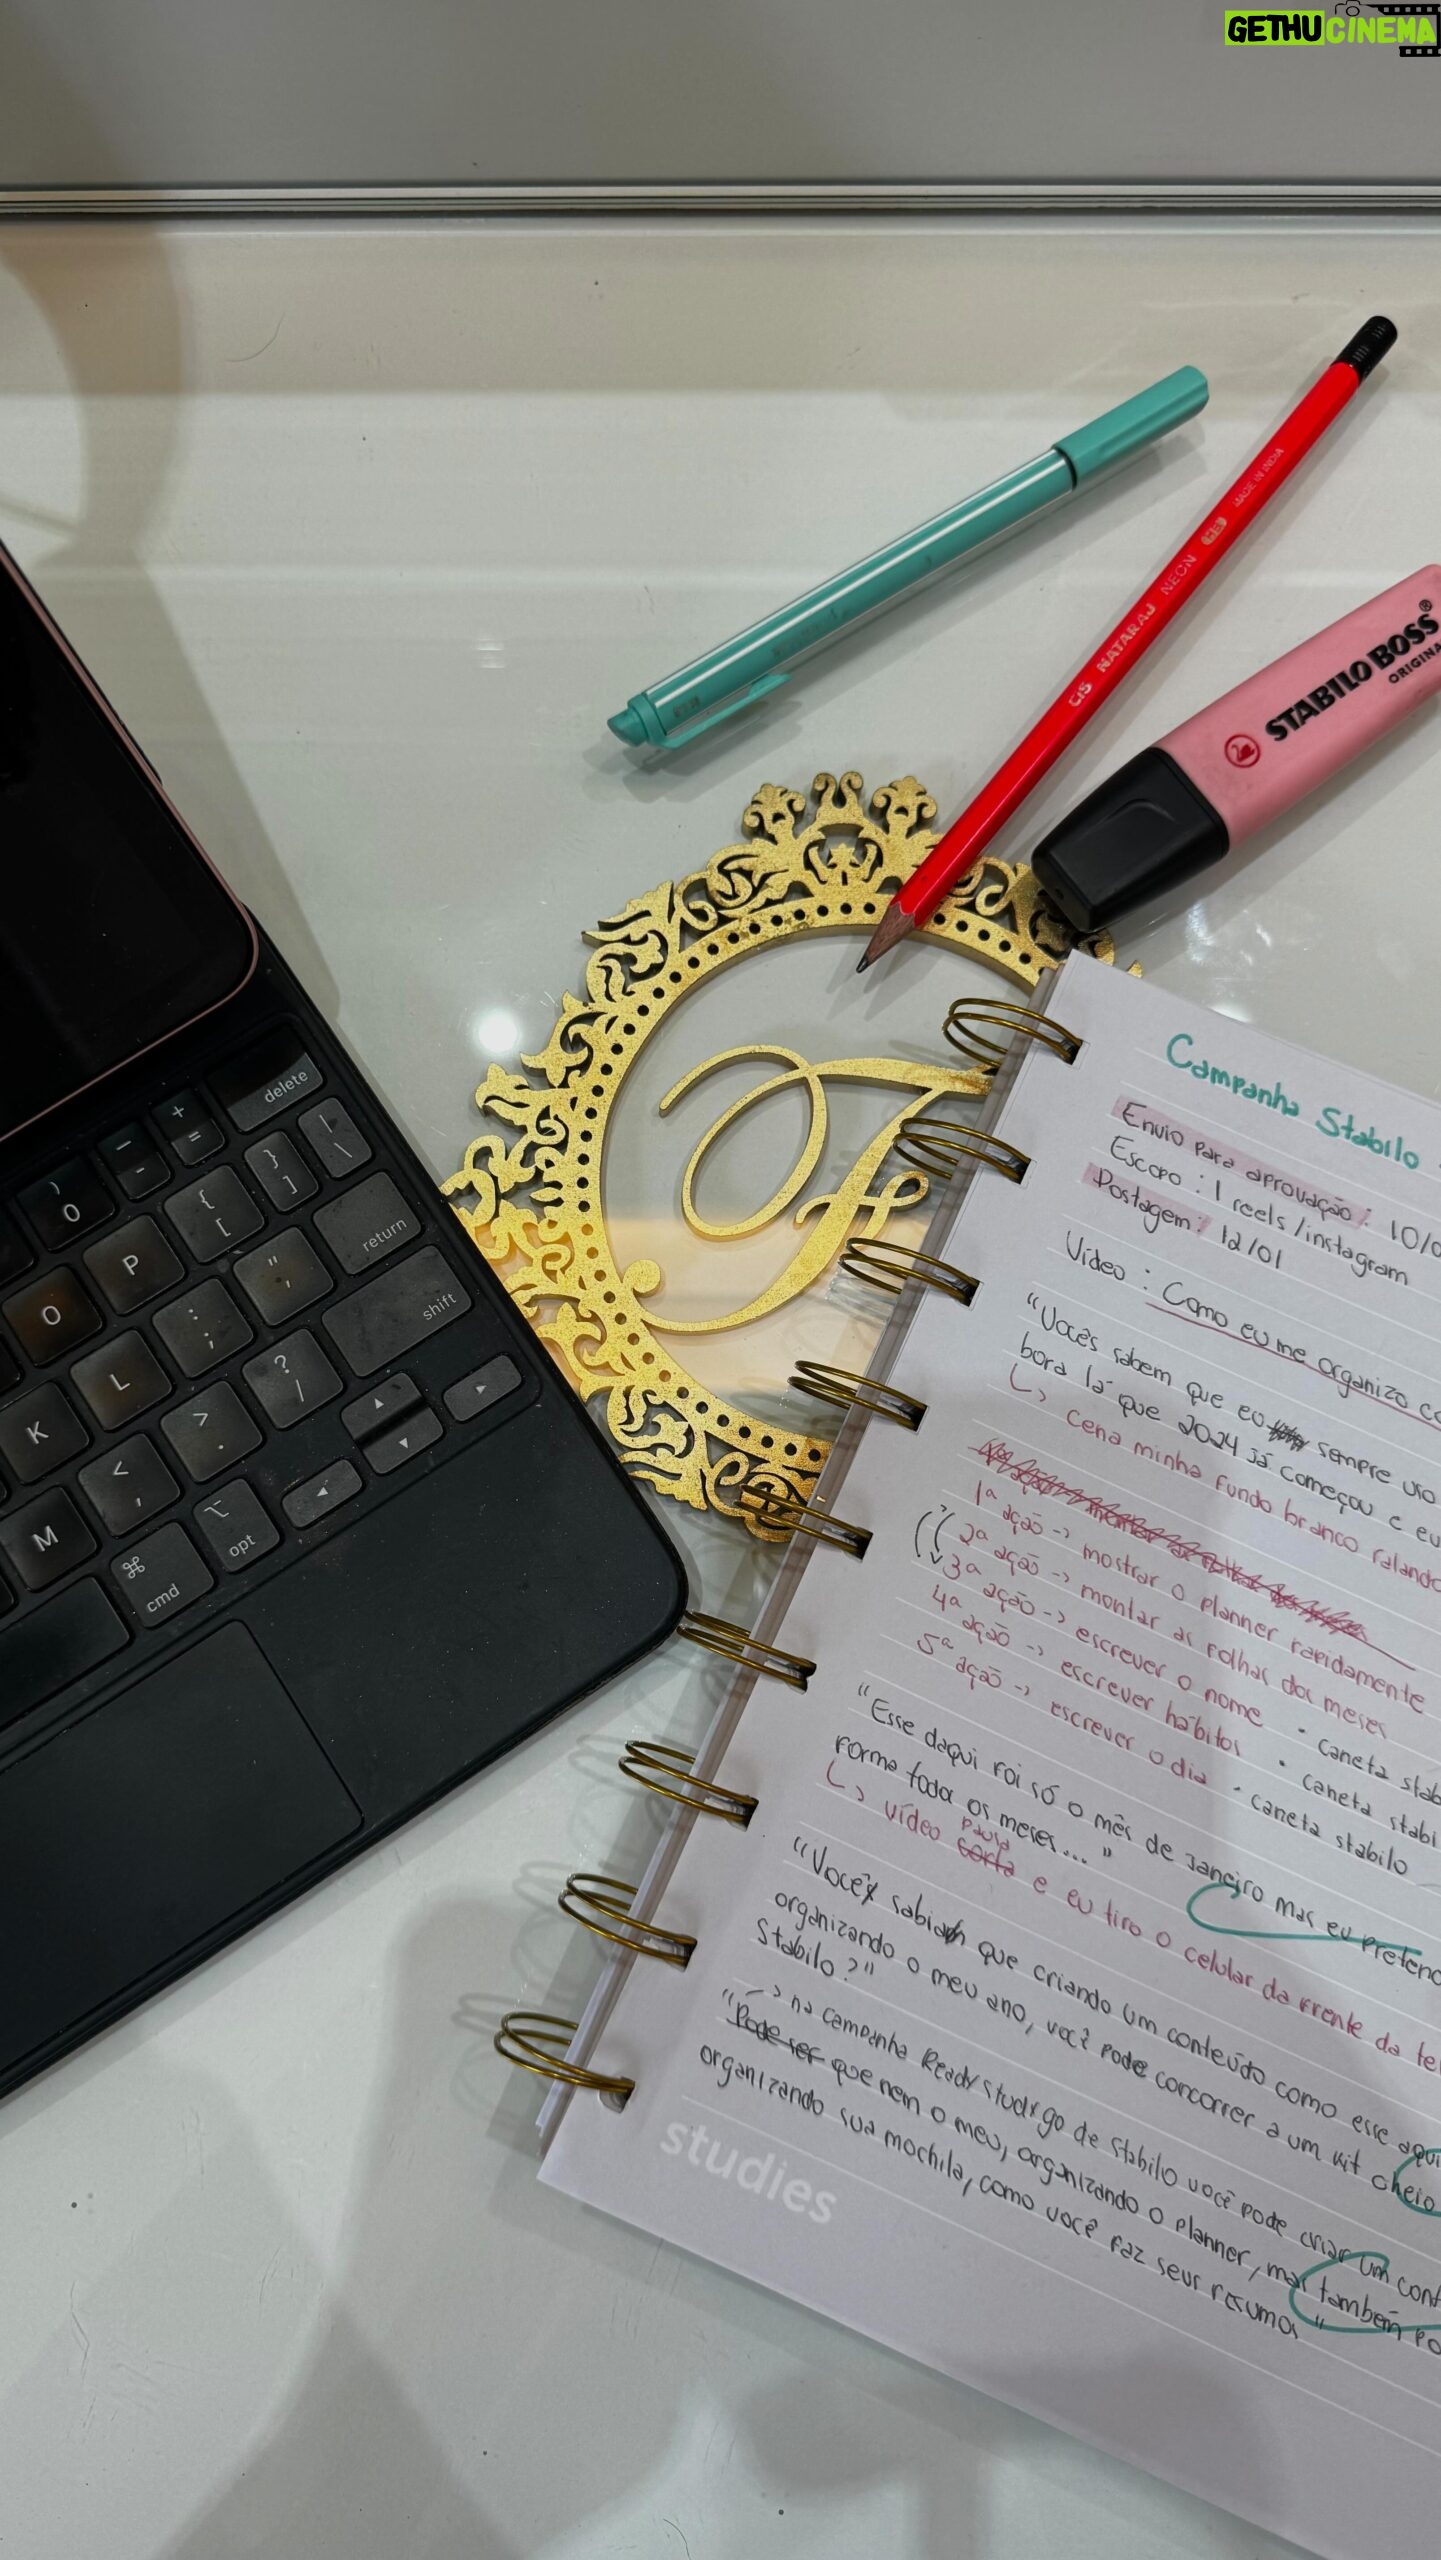 GETHUCINEMA
CIS NATARAJ NEON HB MADE IN INDIA
STABILO BOSS®
ORIGINA
delete
+
=
-
)
0
{
[
}
]
|
\
O
P
return
K
L
:
;
"
'
shift
M
<
,
>
.
?
/
⌘
cmd
⌥
opt
Campanha Stabilo
Envio para aprovação: 10/0
Escopo: 1 reels/instagram
Postagem: 12/01
Vídeo: Como eu me organizo co
"Vocês sabem que eu sempre uso
bora lá que 2024 já começou e eu
↳ cena minha fundo branco falando
1ª ação -> mostrar o planner rapidamente
2ª ação -> montar as folhas dos meses
3ª ação -> escrever o nome · caneta stab
4ª ação -> escrever hábitos · caneta stabi
5ª ação -> escrever o dia · caneta stabilo
"Esse daqui foi só o mês de janeiro mas eu pretend
forma toda os meses..."
pausa
↳ vídeo corta e eu tiro o celular da frente da te
"Você sabia que criando um conteúdo como esse aqui
organizando o meu ano, você pode concorrer a um kit cheio
Stabilo?"
-> na campanha Ready study go de stabilo você pode criar um cont
"Pode ser que nem o meu, organizando o planner, mas também po
organizando sua mochila, como você faz seus resumos"
studies